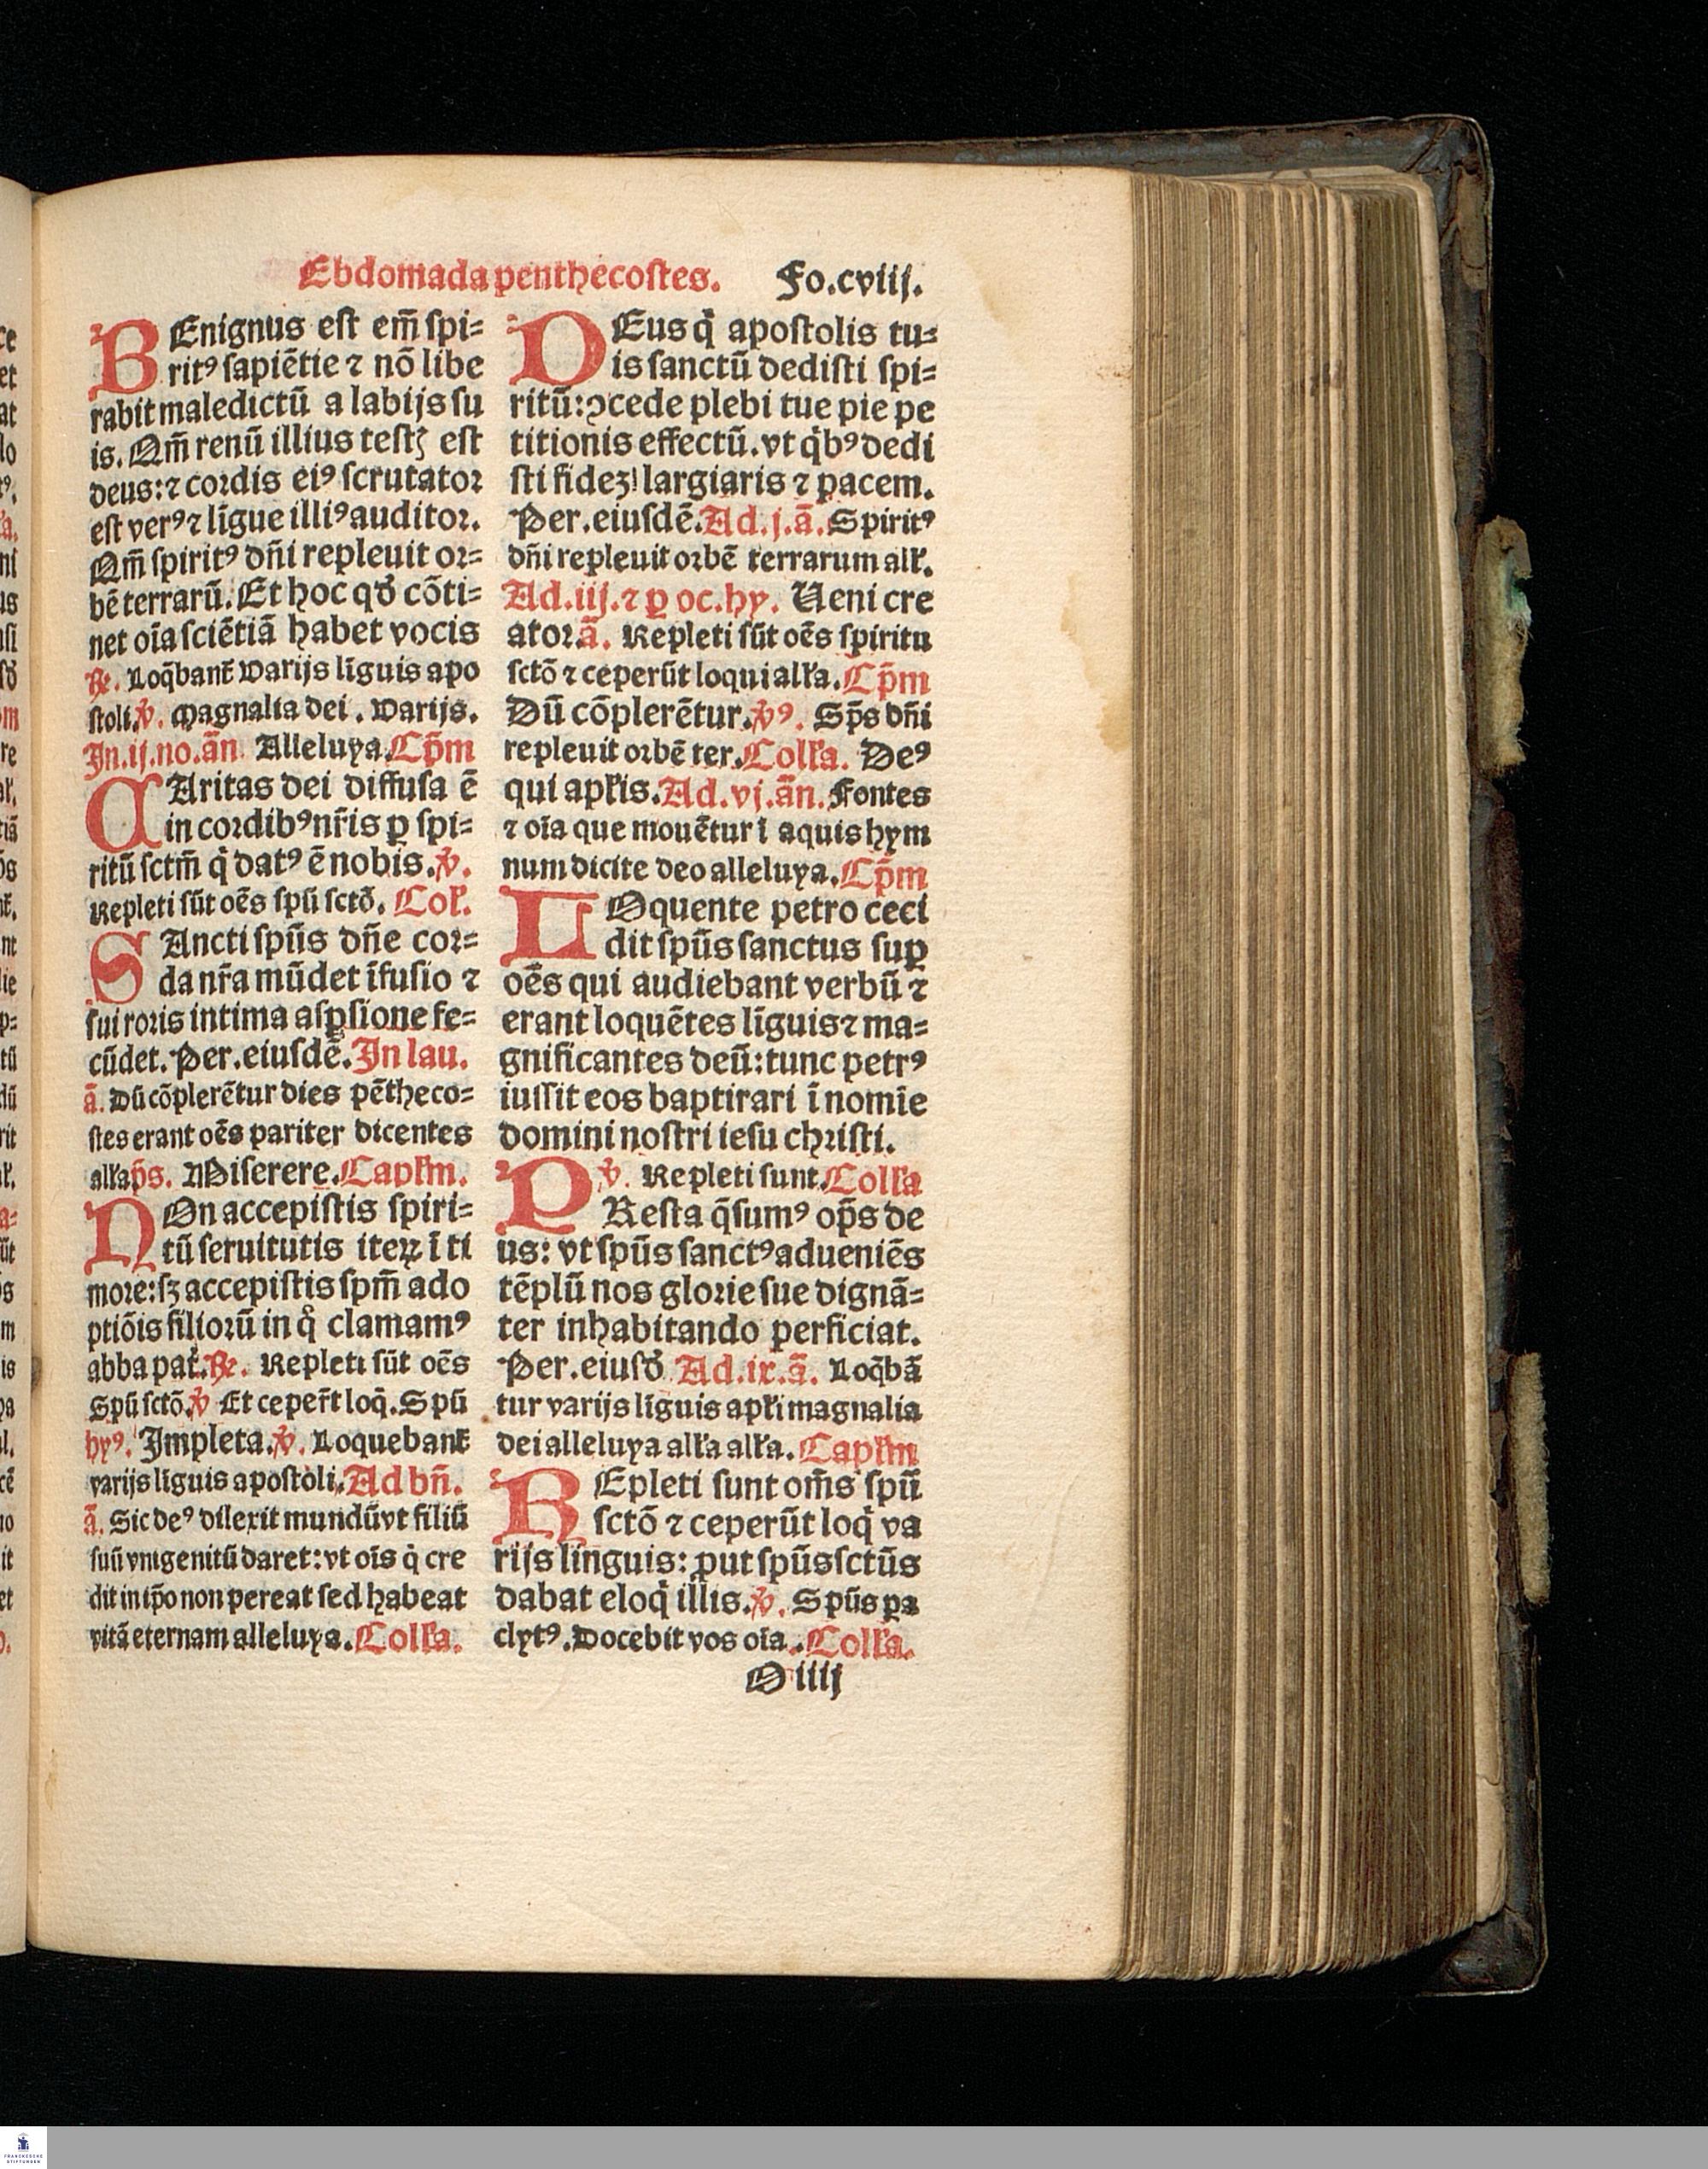 Ebdomada penthecostes. Fo.cviij.
BEnignus est em̄ spi=
ritꝰ sapiētie ⁊ nō libe
rabit maledictū a labijs su
is. Qm̄ renū illius testꝫ est
deus:⁊ cordis eiꝰ scrutator
est verꝰ ⁊ līgue illiꝰ auditor.
Qm̄ spiritꝰ dn̄i repleuit or=
bē terrarū. Et hoc qđ cōti=
net oīa sciētiā habet vocis
℟. Loq̄bant̄ varijs līguis apo
stoli.℣. Magnalia dei. Varijs.
In.ij.no.ān. Alleluya.Cp̄m
CAritas dei diffusa ē
in cordibꝰ nr̄is ꝑ spi=
ritū sctm̄ q̇ datꝰ ē nobis.℣.
Repleti sūt oēs spū sctō. Coll̄.
SAncti spūs dn̄e cor=
da nr̄a mūdet īfusio ⁊
sui roris intima aspꝑsione fe=
cūdet. Per.eiusdē.In lau.
ā. Dū cōplerētur dies pētheco=
stes erant oēs pariter dicentes
all̄a p̄s. Miserere.Capl̄m.
NOn accepistis spiri=
tū seruitutis iteꝝ ī ti
more:sꝫ accepistis spm̄ ado
ptiōis filiorū in q̊ clamamꝰ
abba pat̄.℟. Repleti sūt oēs
Spū sctō.℣ Et ceper̄t loq̇.Spū
hyꝰ. Impleta.℣. Loquebant̄
varijs līguis apostoli.Ad bn̄.
ā. Sic deꝰ dilexit mundū vt filiū
suū vnigenitū daret:vt oīs q̇ cre
dit in ip̄o non pereat sed habeat
vitā eternam alleluya.Coll̄a.
DEus q̇ apostolis tu=
is sanctū dedisti spi=
ritū:ↄcede plebi tue pie pe
titionis effectū.vt q̇bꝰ dedi
sti fidez largiaris ⁊ pacem.
Per.eiusdē.Ad.j.ā.Spiritꝰ
dn̄i repleuit orbē terrarum all̄.
Ad.iij.⁊ ꝑ oc.hy. Ueni cre
ator.ā. Repleti sūt oēs spiritu
sctō ⁊ ceperūt loqui all̄a.Cp̄m
Dū cōplerētur.℣ꝰ. Sp̄s dn̄i
repleuit orbē ter.Coll̄a. Deꝰ
qui apl̄is.Ad.vj.ān.Fontes
⁊ oīa que mouētur ī aquis hym
num dicite deo alleluya.Cp̄m
LOquente petro ceci
dit spūs sanctus suꝑ
oēs qui audiebant verbū ⁊
erant loquētes līguis ⁊ ma=
gnificantes deū:tunc petrꝰ
iussit eos baptirari ī nomīe
domini nostri iesu christi.
℣. Repleti sunt.Coll̄a
PResta q̄sumꝰ op̄s de
us: vt spūs sanctꝰ adueniēs
tēplū nos glorie sue dignā=
ter inhabitando perficiat.
Per.eiusđ Ad.ix.ā. Loq̄bā
tur varijs līguis apl̄i magnalia
dei alleluya all̄a all̄a.Capl̄m
REpleti sunt om̄s spū
sctō ⁊ ceperūt loq̇ va
rijs linguis: ꝓut spūs sctūs
dabat eloq̇ illis.℣. Spūs pa
clytꝰ.Docebit vos oīa.Coll̄a.
O iiij
FRANCKESCHE
STIFTUNGEN